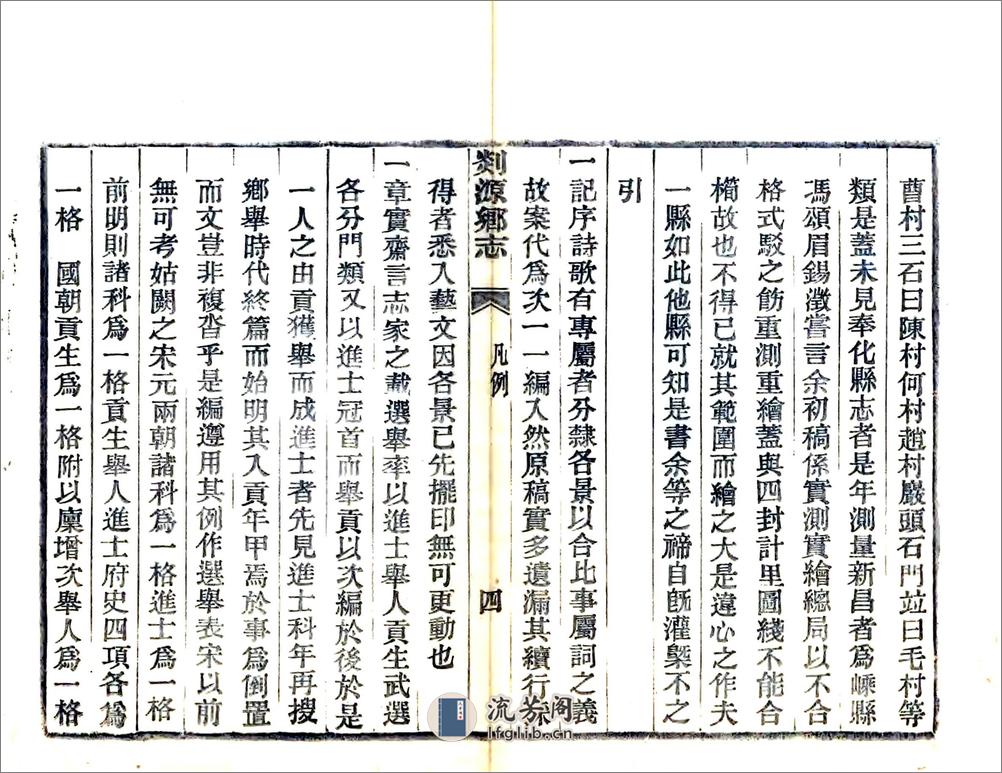 曹村三石曰陳村何村趙村嚴頭石門竝曰毛村等
類是蓋未見奉化縣志者是年測量新昌者爲嵊縣
馮頌眉錫澂嘗言余初稿係實測實繪總局以不合
格式駁之飭重測重繪蓋與四封計里圖綫不能合
櫛故也不得已就其範圍而繪之大是違心之作夫
一縣如此他縣可知是書余等之禘自旣灌槩不之
引
一記序詩歌有專屬者分隸各景以合比事屬詞之義
故案代爲次一一編入然原稿實多遺漏其續行
剡源鄉志
凡例
四
得者悉入藝文因各景已先擺印無可更動也
一章實齋言志家之載選舉率以進士舉人貢生武選
各分門類又以進士冠首而舉貢以次編於後於是
一人之由貢獲舉而成進士者先見進士科年再搜
鄉舉時代終篇而始明其入貢年甲焉於事爲倒置
而文豈非複沓乎是編遵用其例作選舉表宋以前
無可考姑闕之宋元兩朝諸科爲一格進士爲一格
前明則諸科爲一格貢生舉人進士府史四項各爲
一格 國朝貢生爲一格附以廩增次舉人爲一格
流芳阁
lfglib.cn